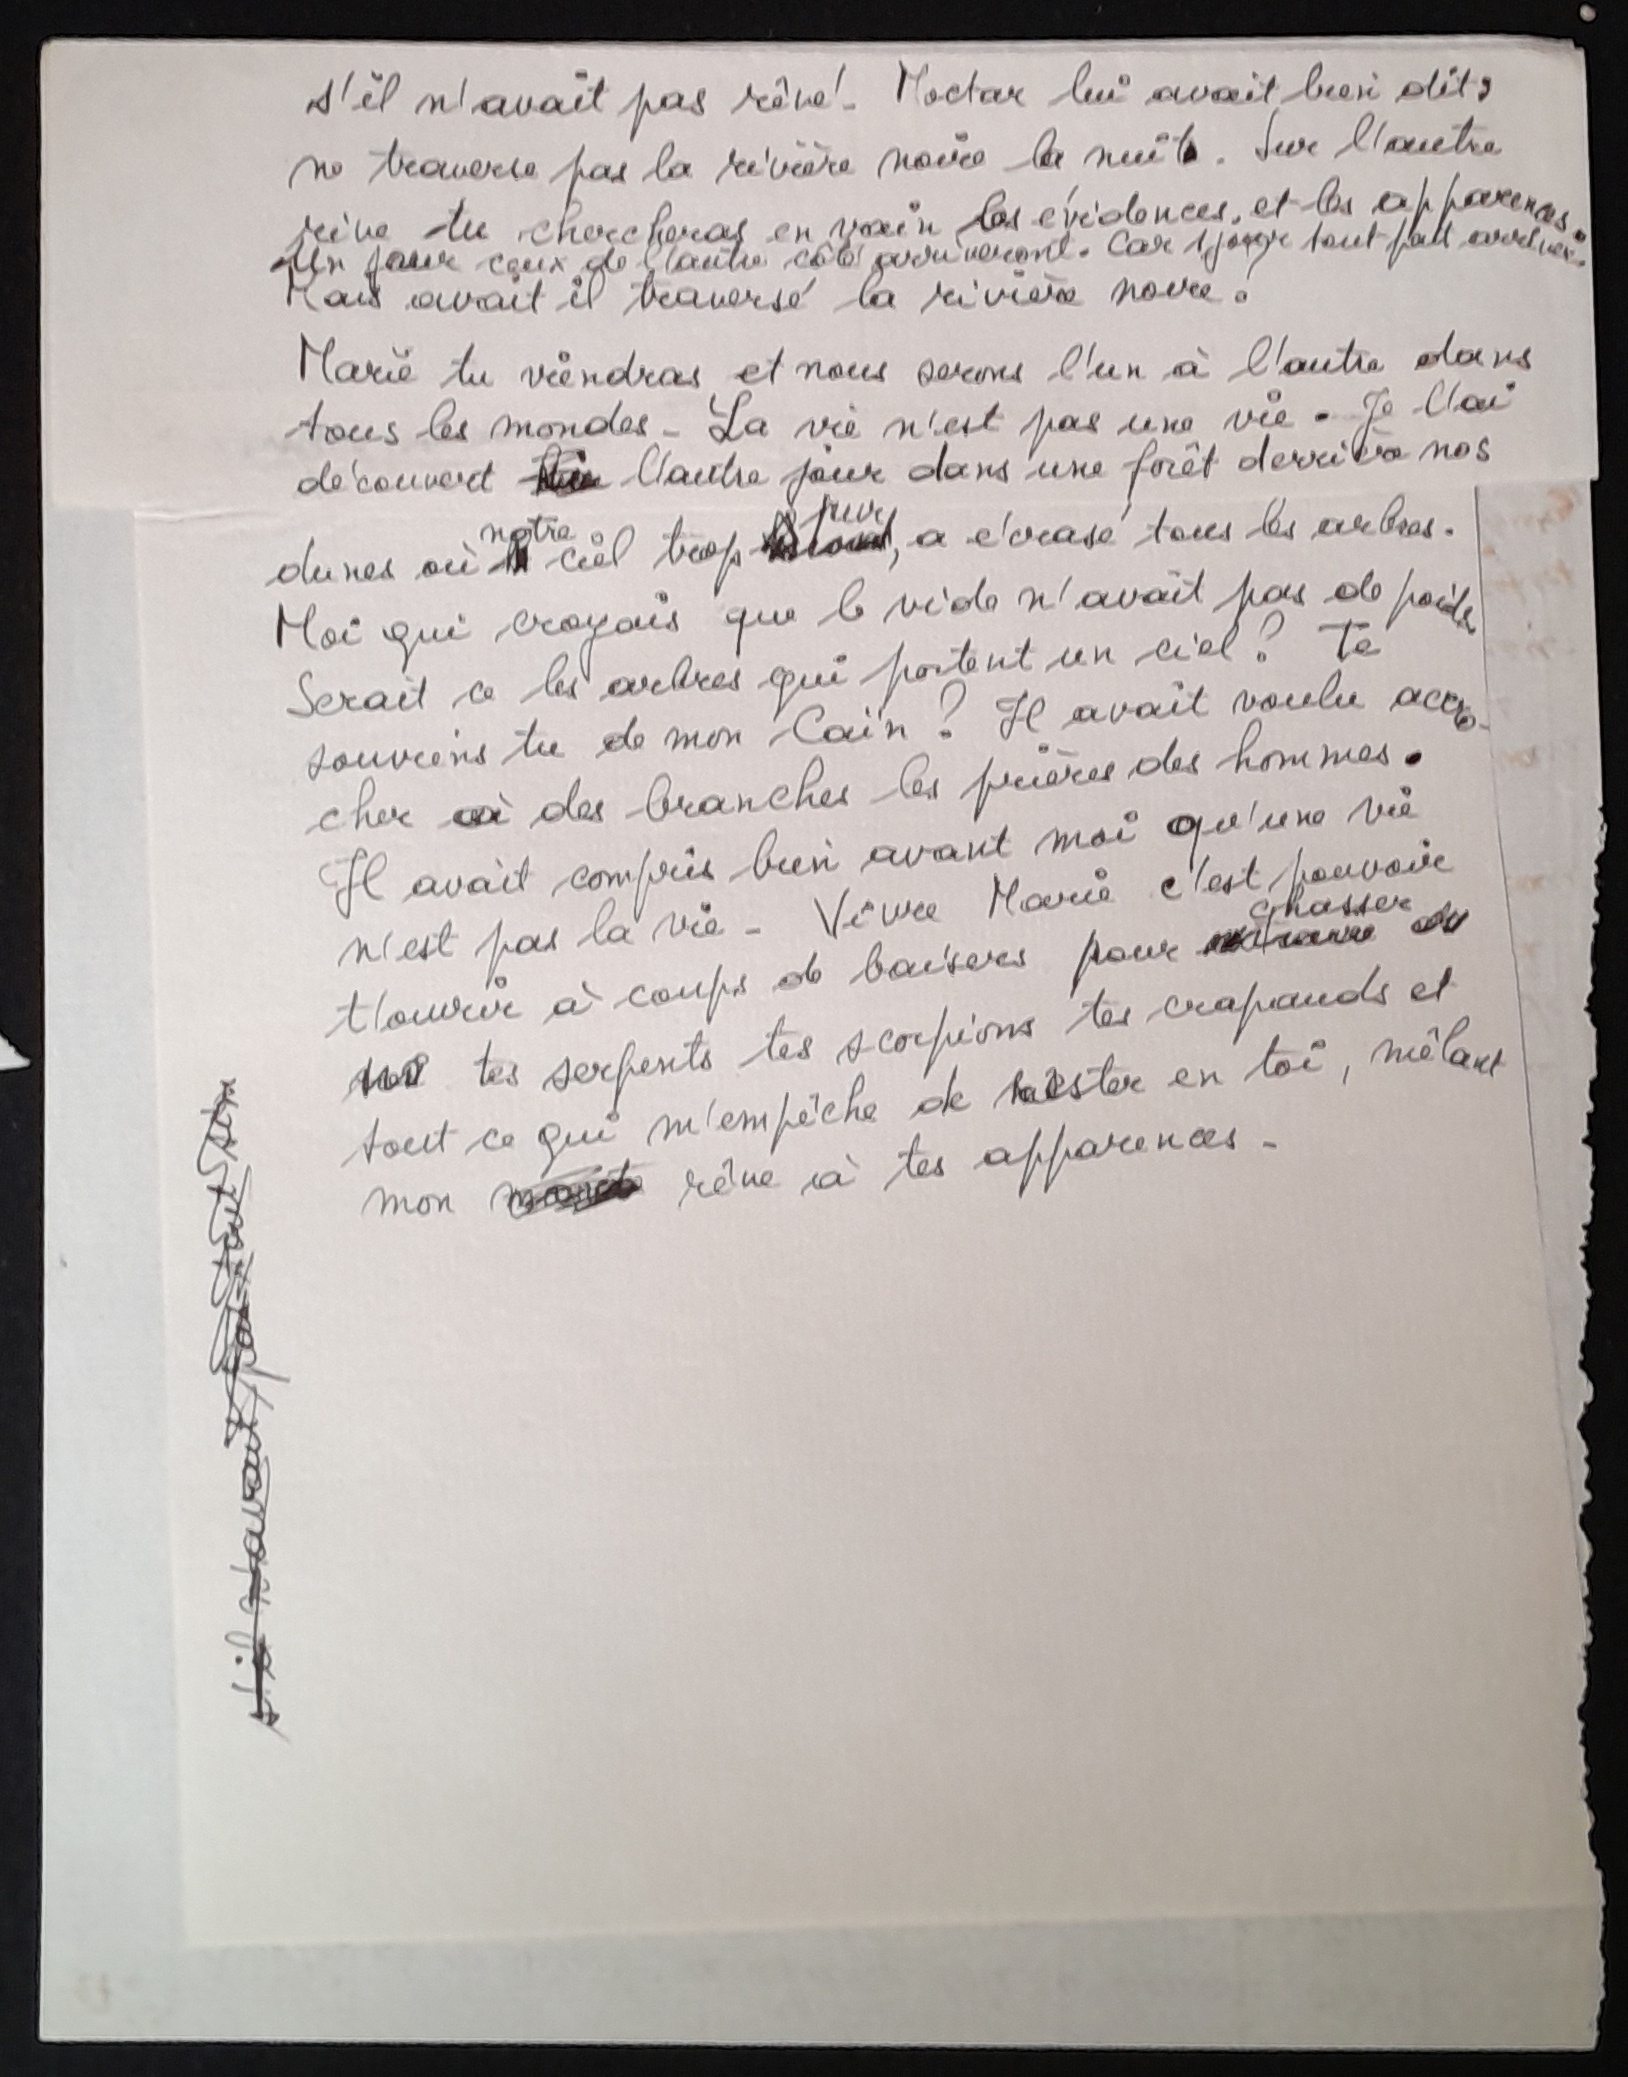 s'il n'avait pas rêvé. Moctar lui avait bien dit :
ne traverse pas la rivière noire la nuit. Sur l'autre
rive tu chercheras en vain les évidences, et les apparences.
Un jour ceux de l'autre côté arriveront. Car 1 jour tout peut arriver.
Mais avait il traversé la rivière noire.
Marie tu viendras et nous serons l'un à l'autre dans
tous les mondes - La vie n'est pas une vie. Je l'ai
découvert l'autre jour dans une forêt derrière nos
dunes où notre ciel trop pur, a écrasé tous les arbres.
Moi qui croyais que le vide n'avait pas de poids
Serait ce les arbres qui portent un ciel ? Te
souviens tu de mon Caïn ? Il avait voulu accro-
cher à des branches les prières des hommes.
Il avait compris bien avant moi qu'une vie
n'est pas la vie - Vivre Marie c'est pouvoir
t'ouvrir à coups de baisers pour chasser
tes serpents tes scorpions tes crapauds et
tout ce qui m'empêche de rester en toi, mêlant
mon rêve à tes apparences -
s'il n'avait pas